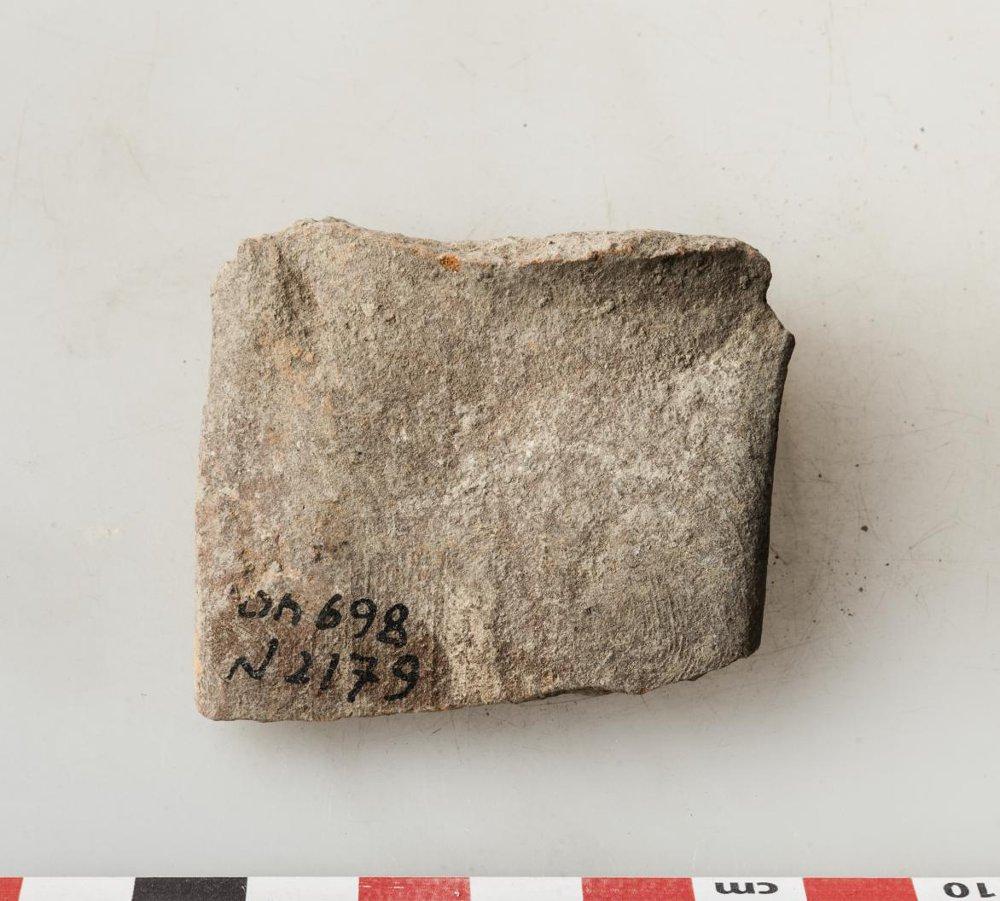 698
N 2179
cm
10